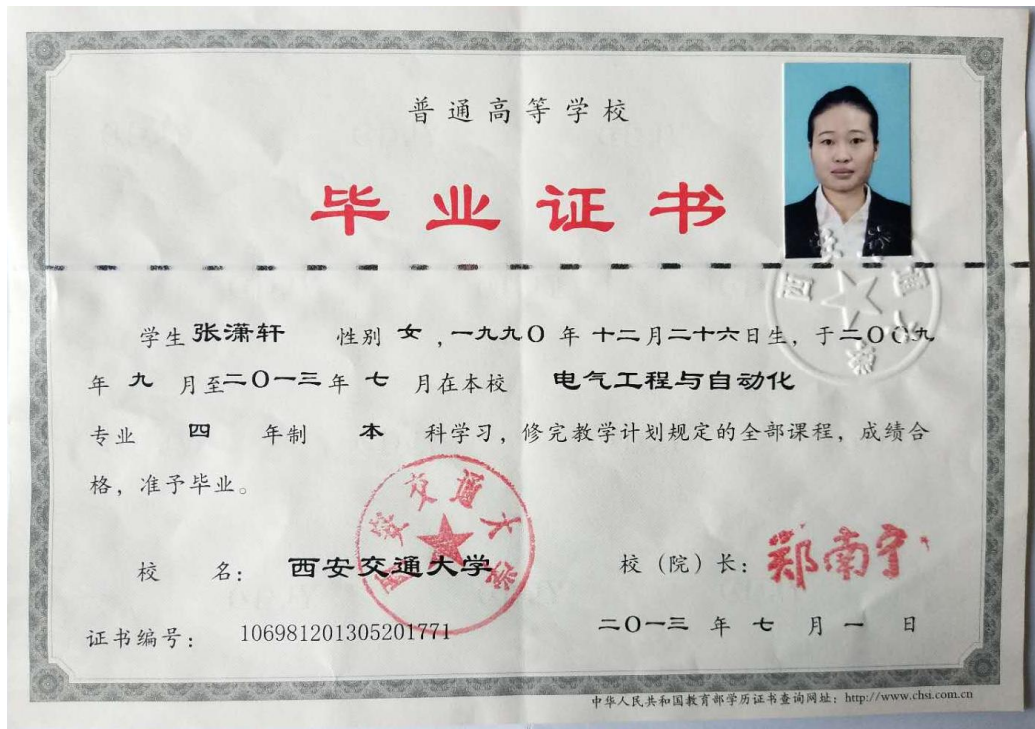 普通高等学校
毕业证书
学生 张潇轩 性别 女，一九九〇年 十二月二十六日生，于二〇〇九
年 九 月至二〇一三年 七 月在本校 电气工程与自动化
专业 四 年制 本 科学习，修完教学计划规定的全部课程，成绩合
格，准予毕业。
西安交通大学
校 名： 西安交通大学 校（院）长： 郑南宁
证书编号： 106981201305201771 二〇一三 年 七 月 一 日
中华人民共和国教育部学历证书查询网址：http://www.chsi.com.cn